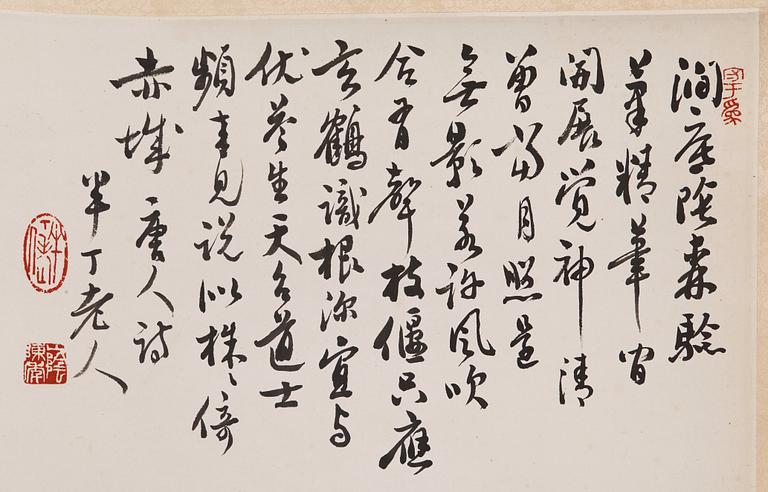 澗底陰森驗
筆精筆間
開展覺神清
曾當月照還
無影若許風吹
合有聲枝偃只應
玄鶴識根深宜與
伏苓生天台道士
頻來見說似株〻倚
赤城 唐人詩
半丁老人